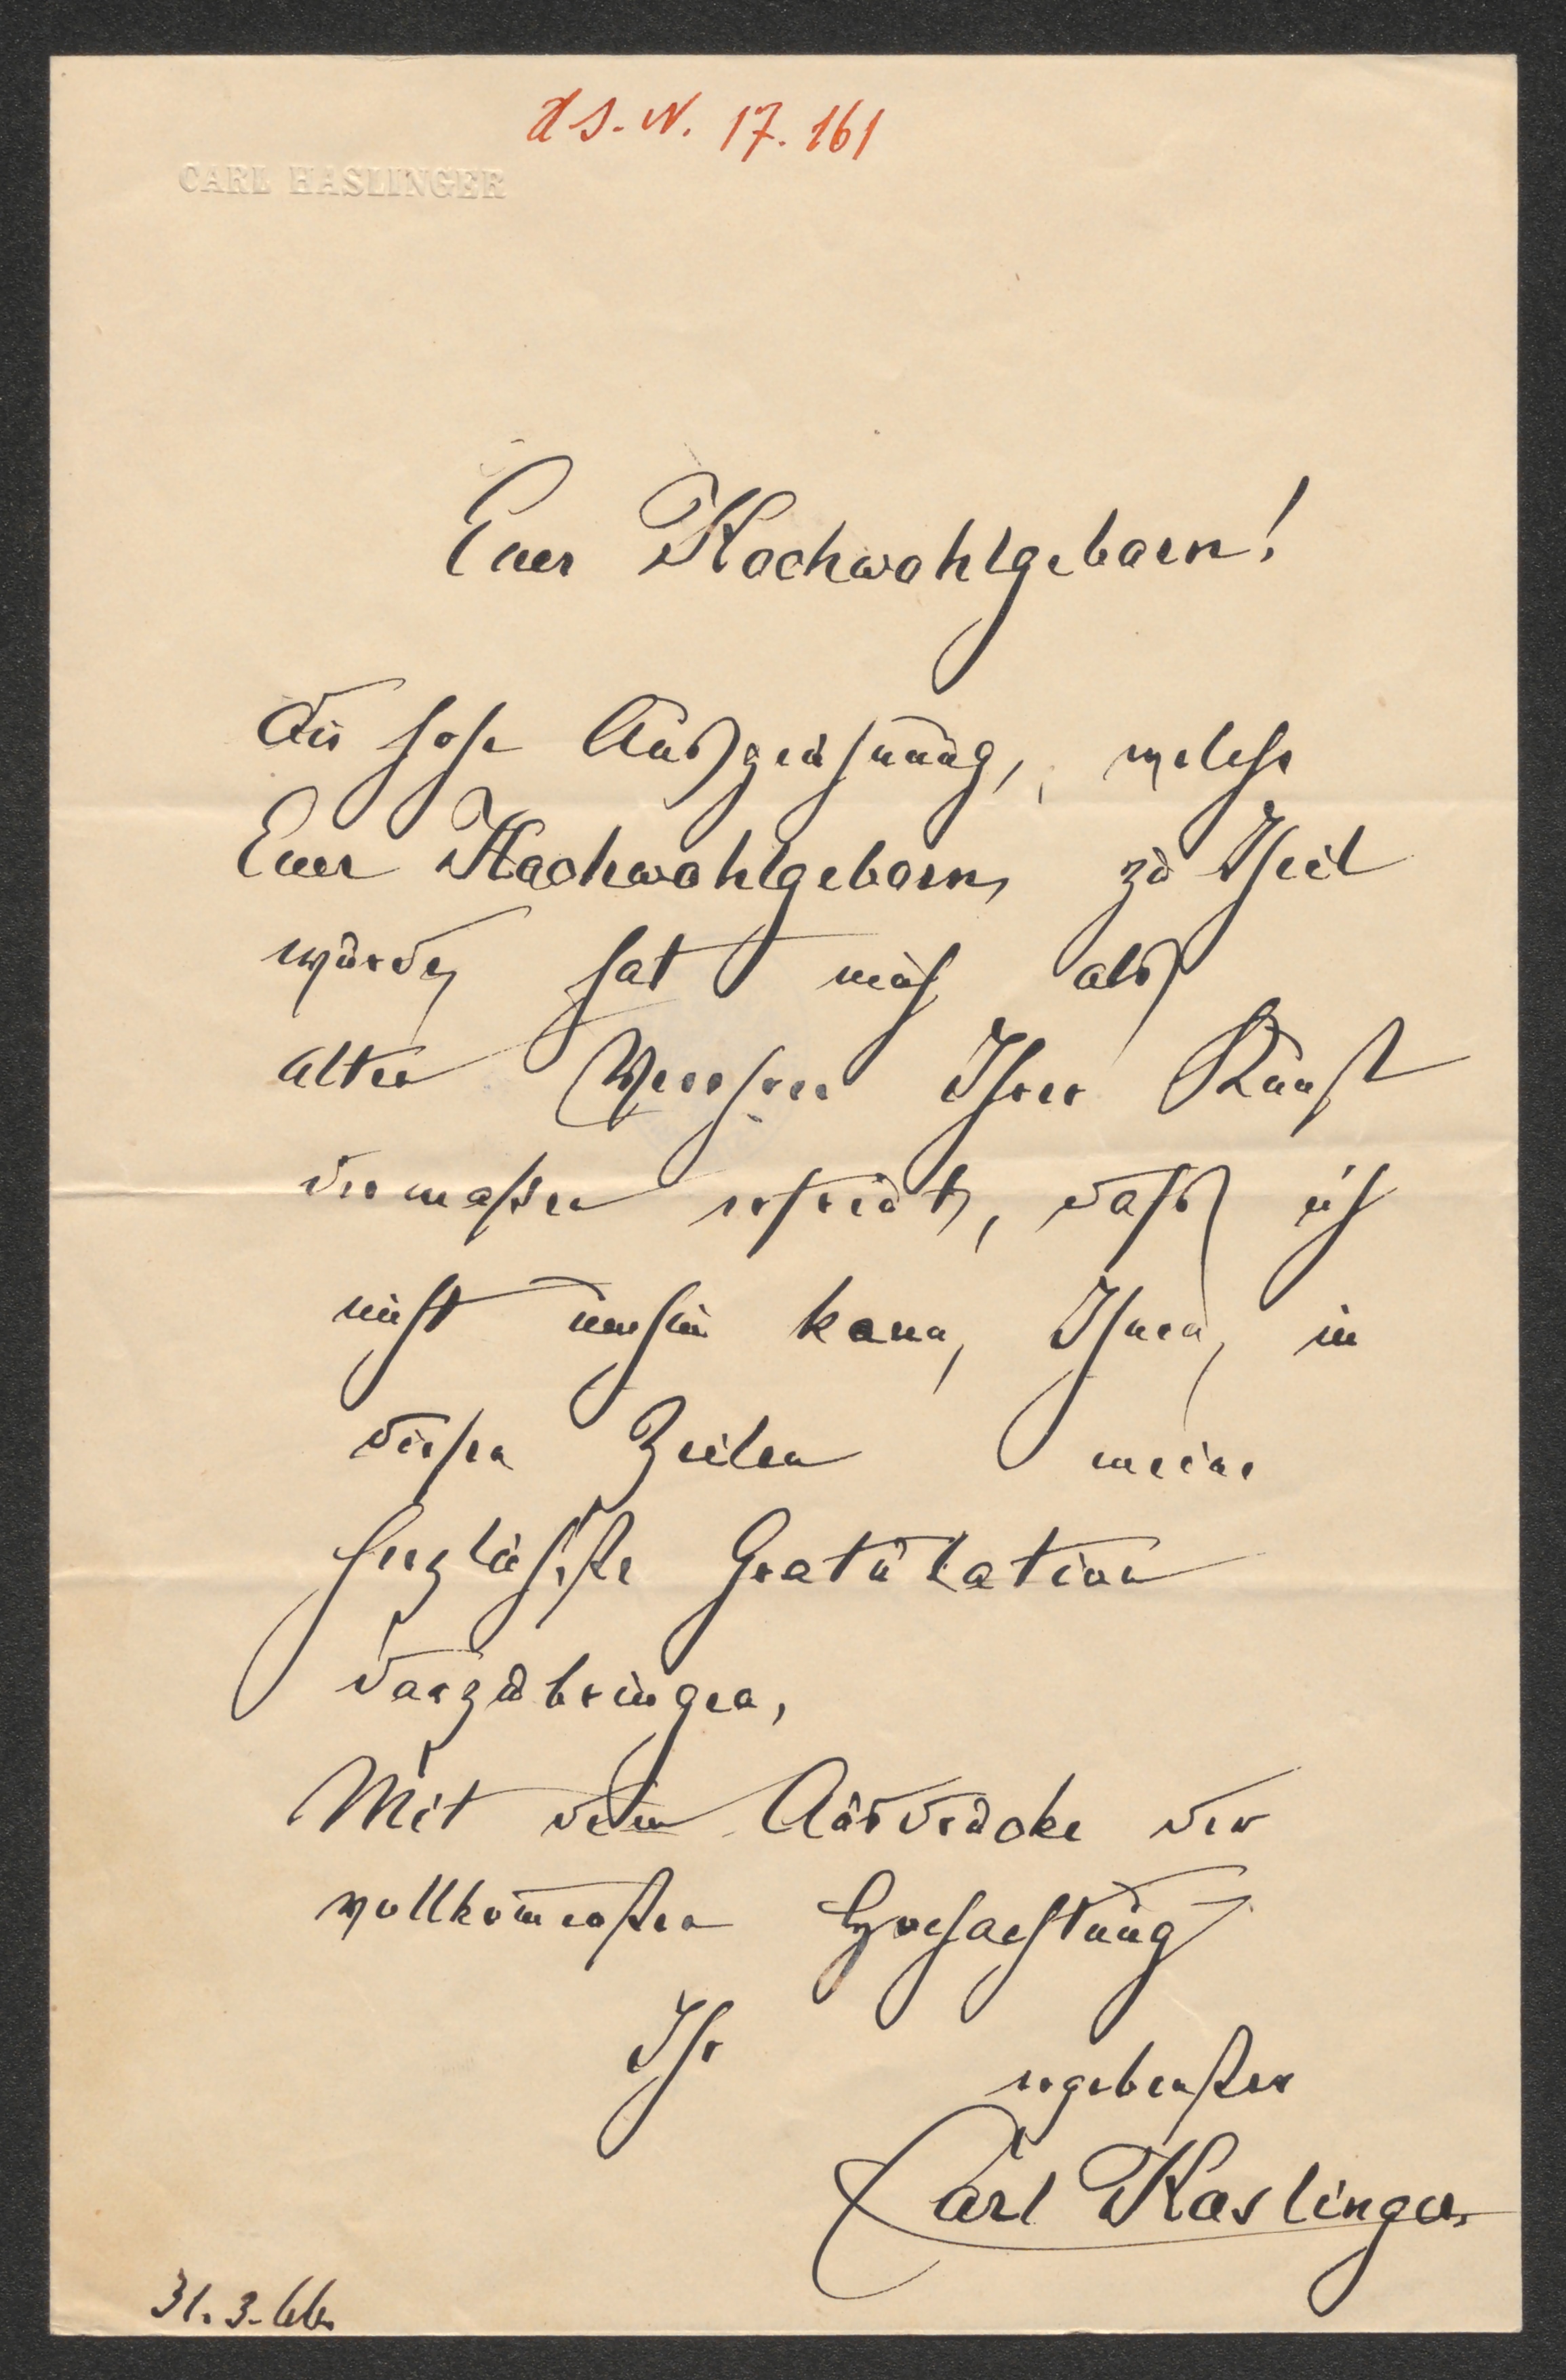 H.I.N. 17.161
CARL HASLINGER
Euer Hochwohlgeborn!
Die hohe Auszeichnung, welche
Euer Hochwohlgeborn, zu Theil
wurde, hat mich als
alten Verehrer Ihrer Kunst
dermaßen erfreut, daß ich
nicht umhin kann, Ihnen, in
diesen Zeilen meine
herzlichste Gratulation
darzubringen,
Mit dem Ausdrucke der
vollkom̅ensten Hochachtung
Ihr
ergebenster
Carl Haslinger
31.3.66.